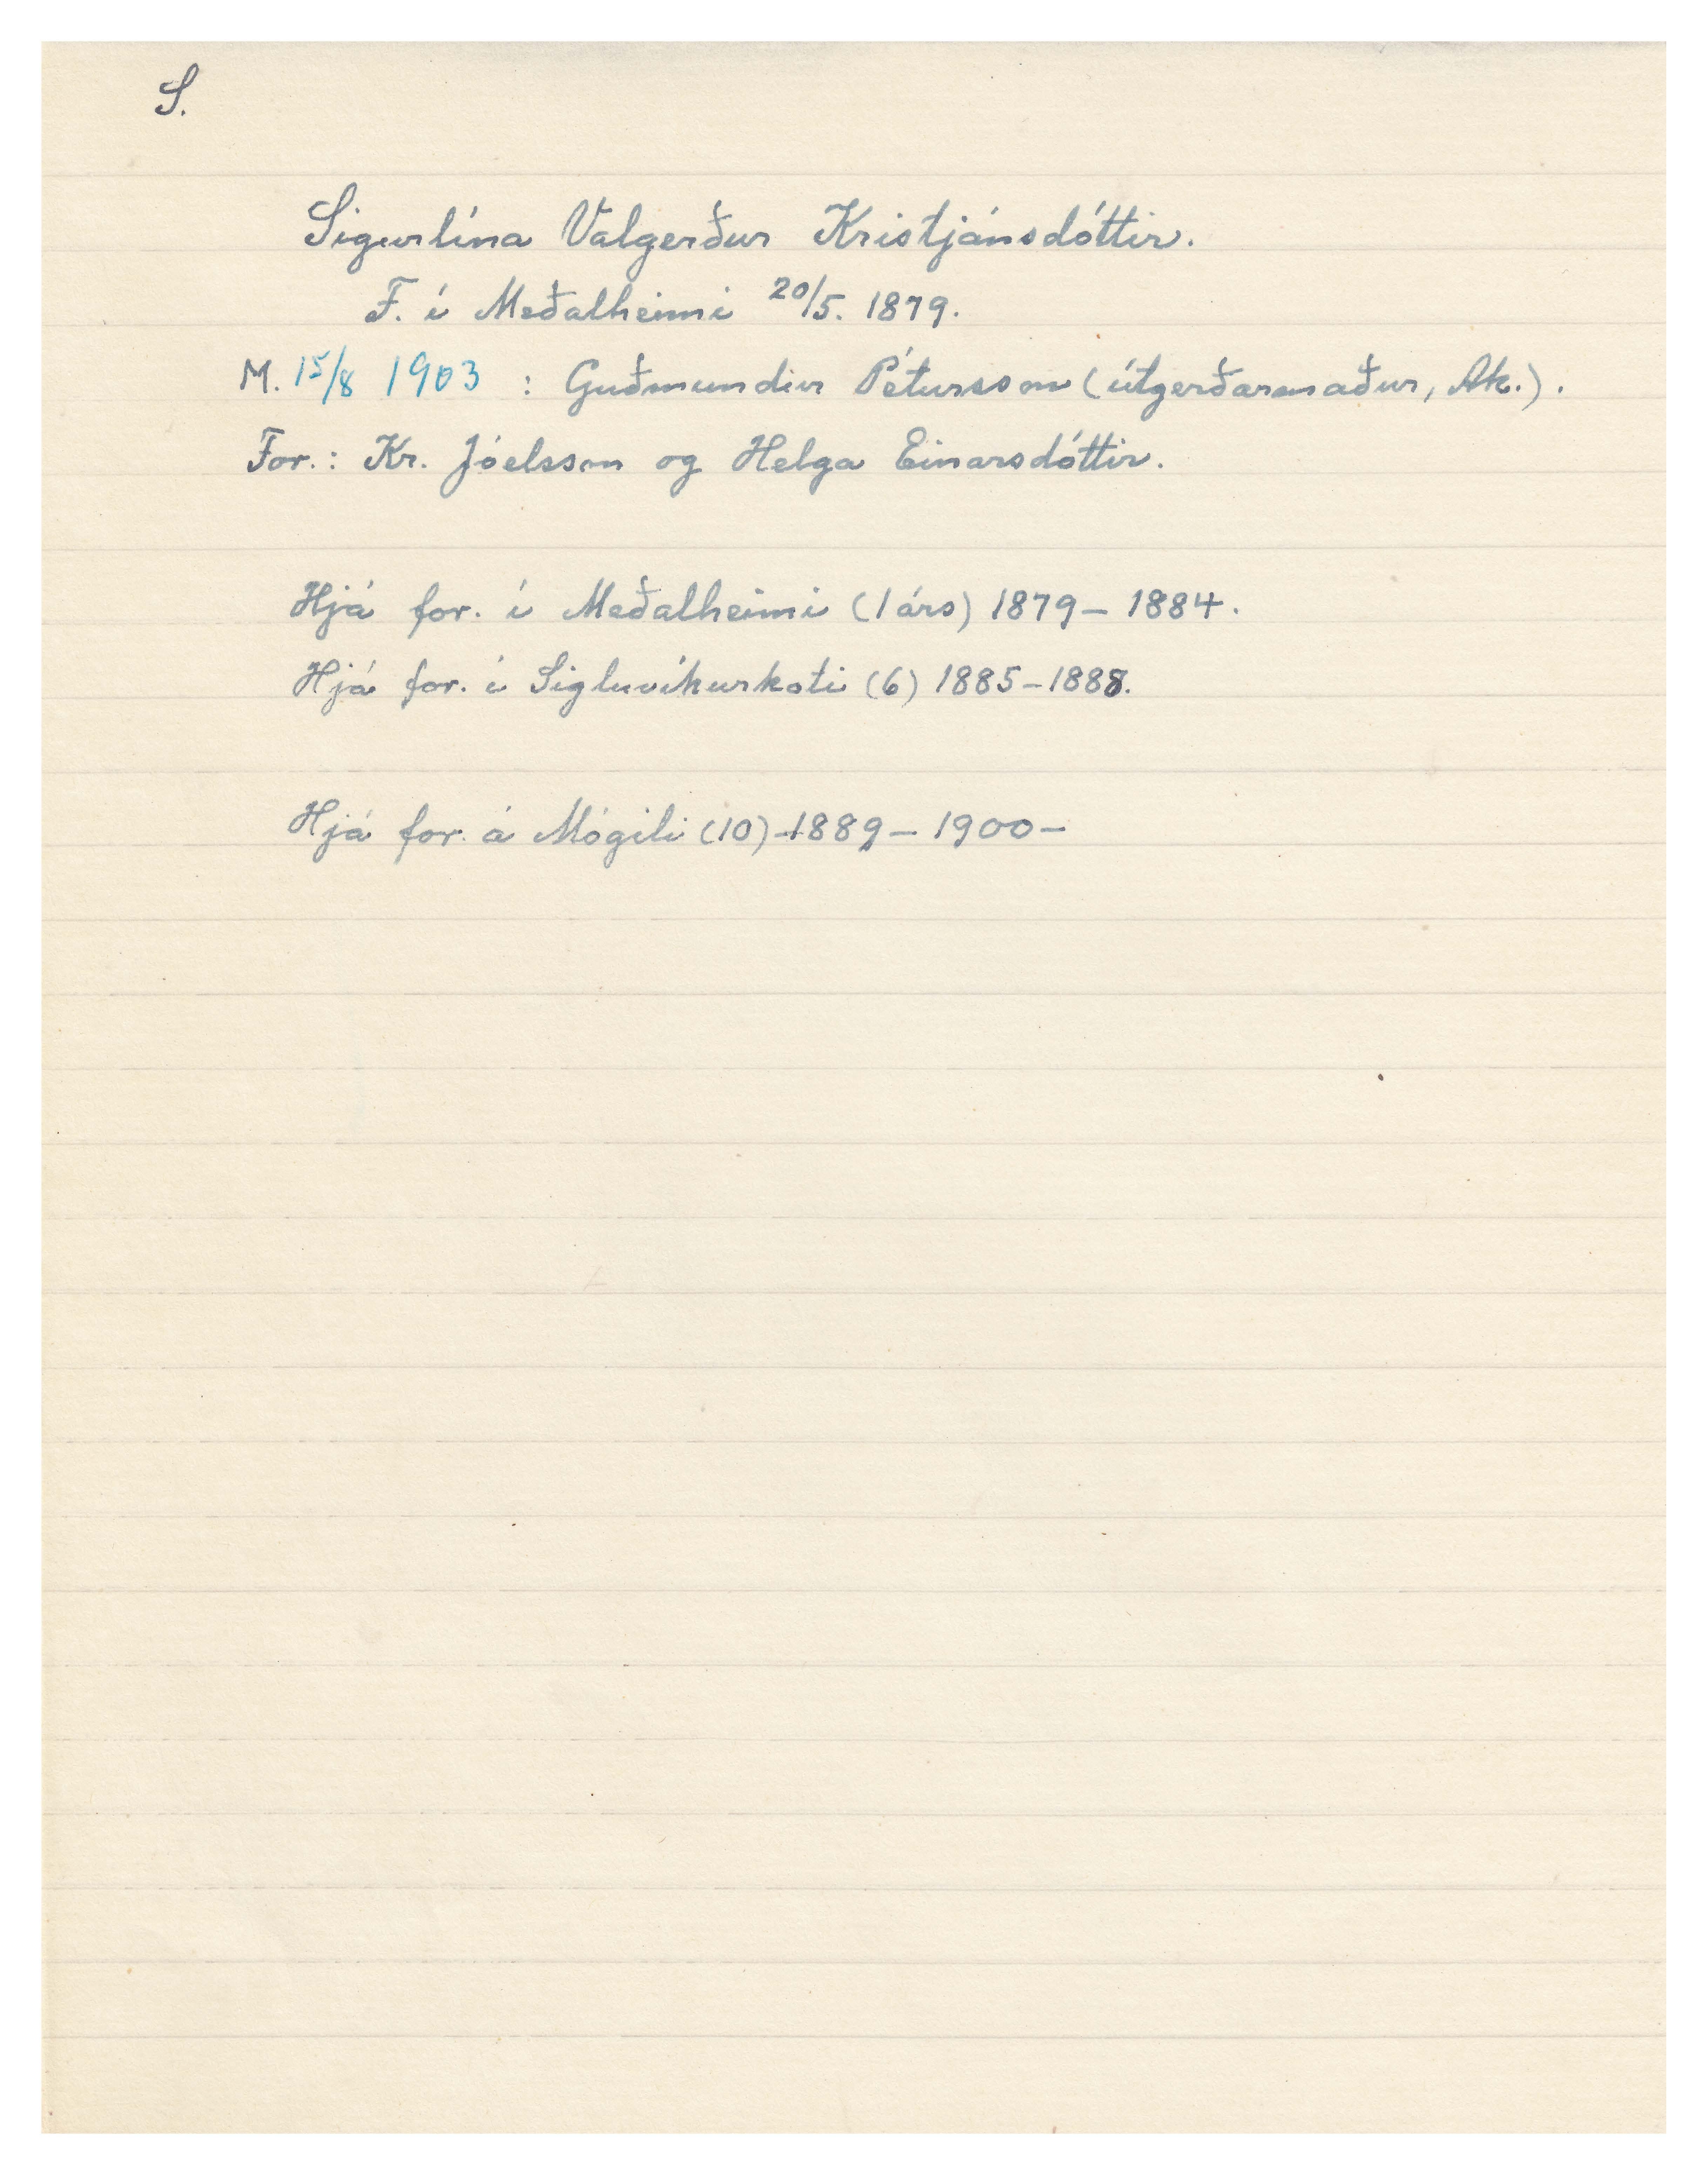 S.
Sigurlína Valgerður Kristjánsdóttir.
F. í Meðalheimi 20/5. 1879.
M. 15/8 1903 : Guðmundur Pétursson (útgerðarmaður, Ak.).
For.: Kr. Jóelsson og Helga Einarsdóttir.
Hjá for. í Meðalheimi (1 árs) 1879 – 1884.
Hjá for. í Sigluvíkurkoti (6) 1885 – 1888.
Hjá for. á Mógili (10) – 1889 – 1900 –